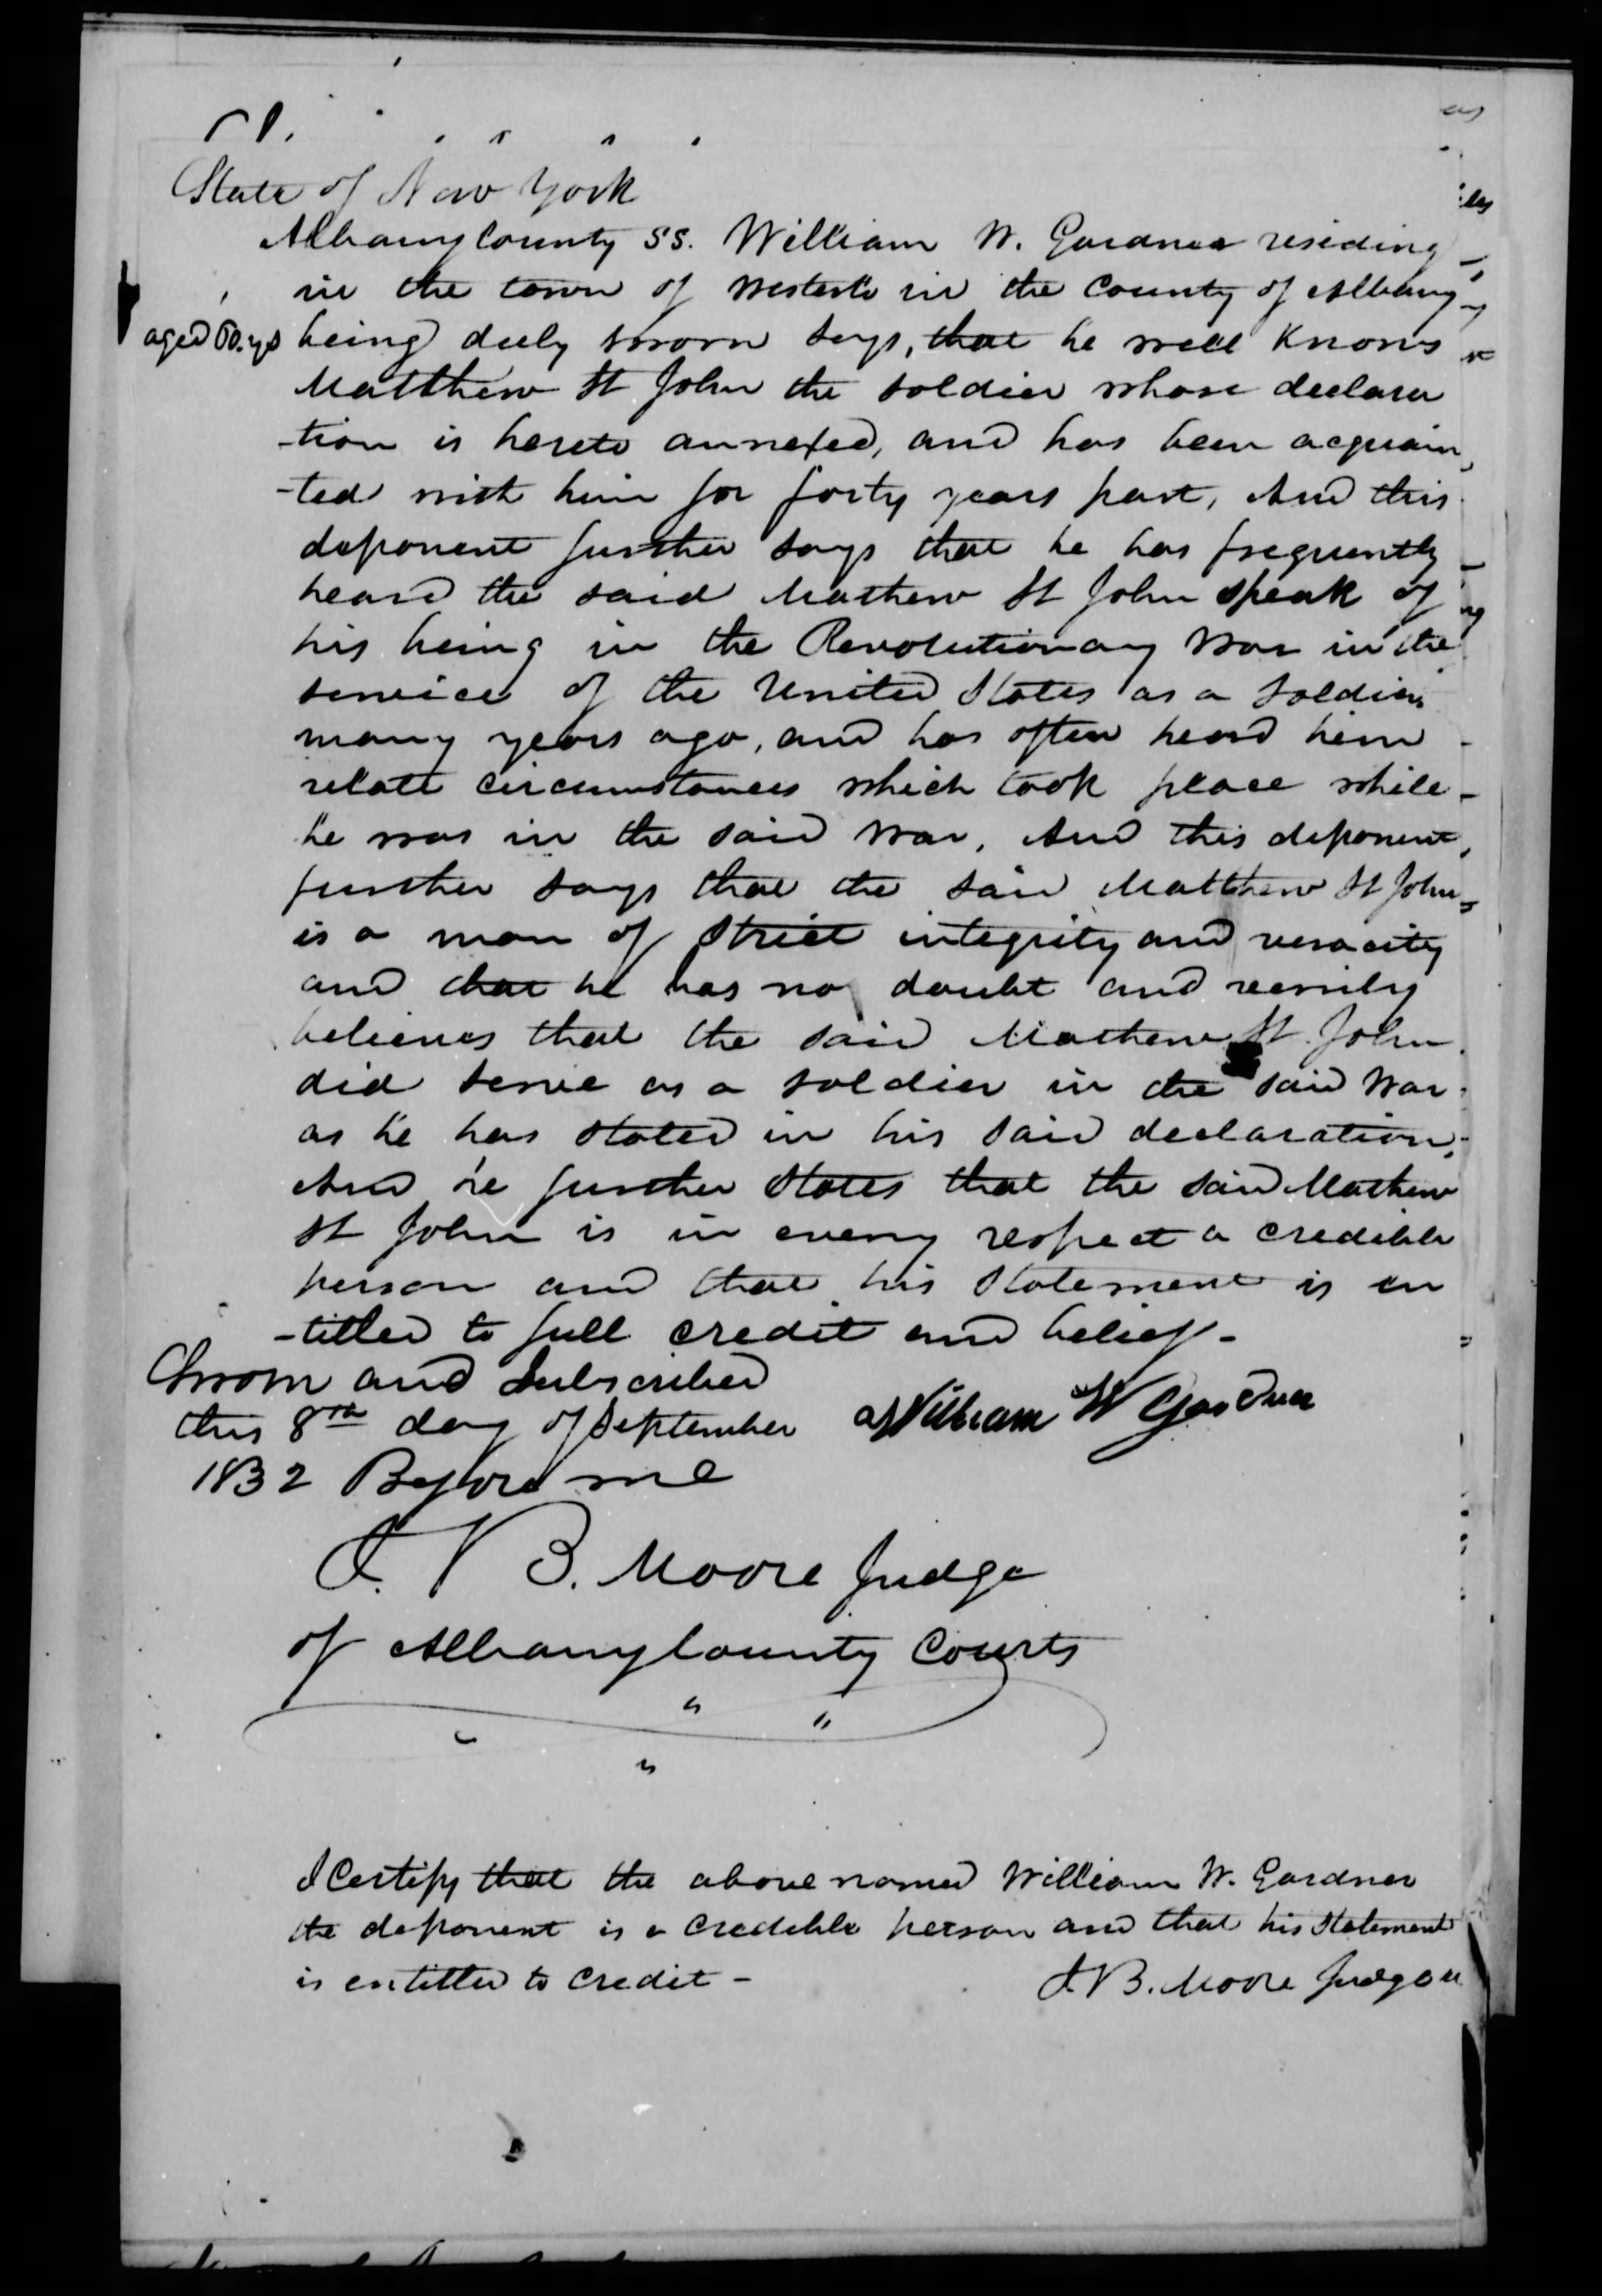 State of New York
Albany County SS. William W. Gardner residing
in the town of Westerlo in the County of Albany
aged 60. yrs being duly sworn says, that he well knows
Matthew St John the soldier whose declara
-tion is hereto annexed, and has been acquain
-ted with him for forty years past, And this
deponent further says that he has frequently
heard the said Mathew St John speak of
his being in the Revolutionary War in the
service of the United States as a soldier
many years ago, and has often heard him
relate circumstances which took place while
he was in the said war, And this deponent
further says that the said Matthew St John
is a man of strict integrity and veracity
and that he has no doubt and verily
believes that the said Mathew St. John
did serve as a soldier in the said War
as he has stated in his said declaration,
And he further states that the said Mathew
St John is in every respect a credible
person and that his statement is en
-titled to full credit and belief -
Sworn and Subscribed
this 8th day of September William W Gardner
1832 Before me
B. Moore Judge
of Albany County Courts
I Certify that the above named William W. Gardner
the deponent is a credible person and that his statement
is entitled to credit -
B. Moore Judge